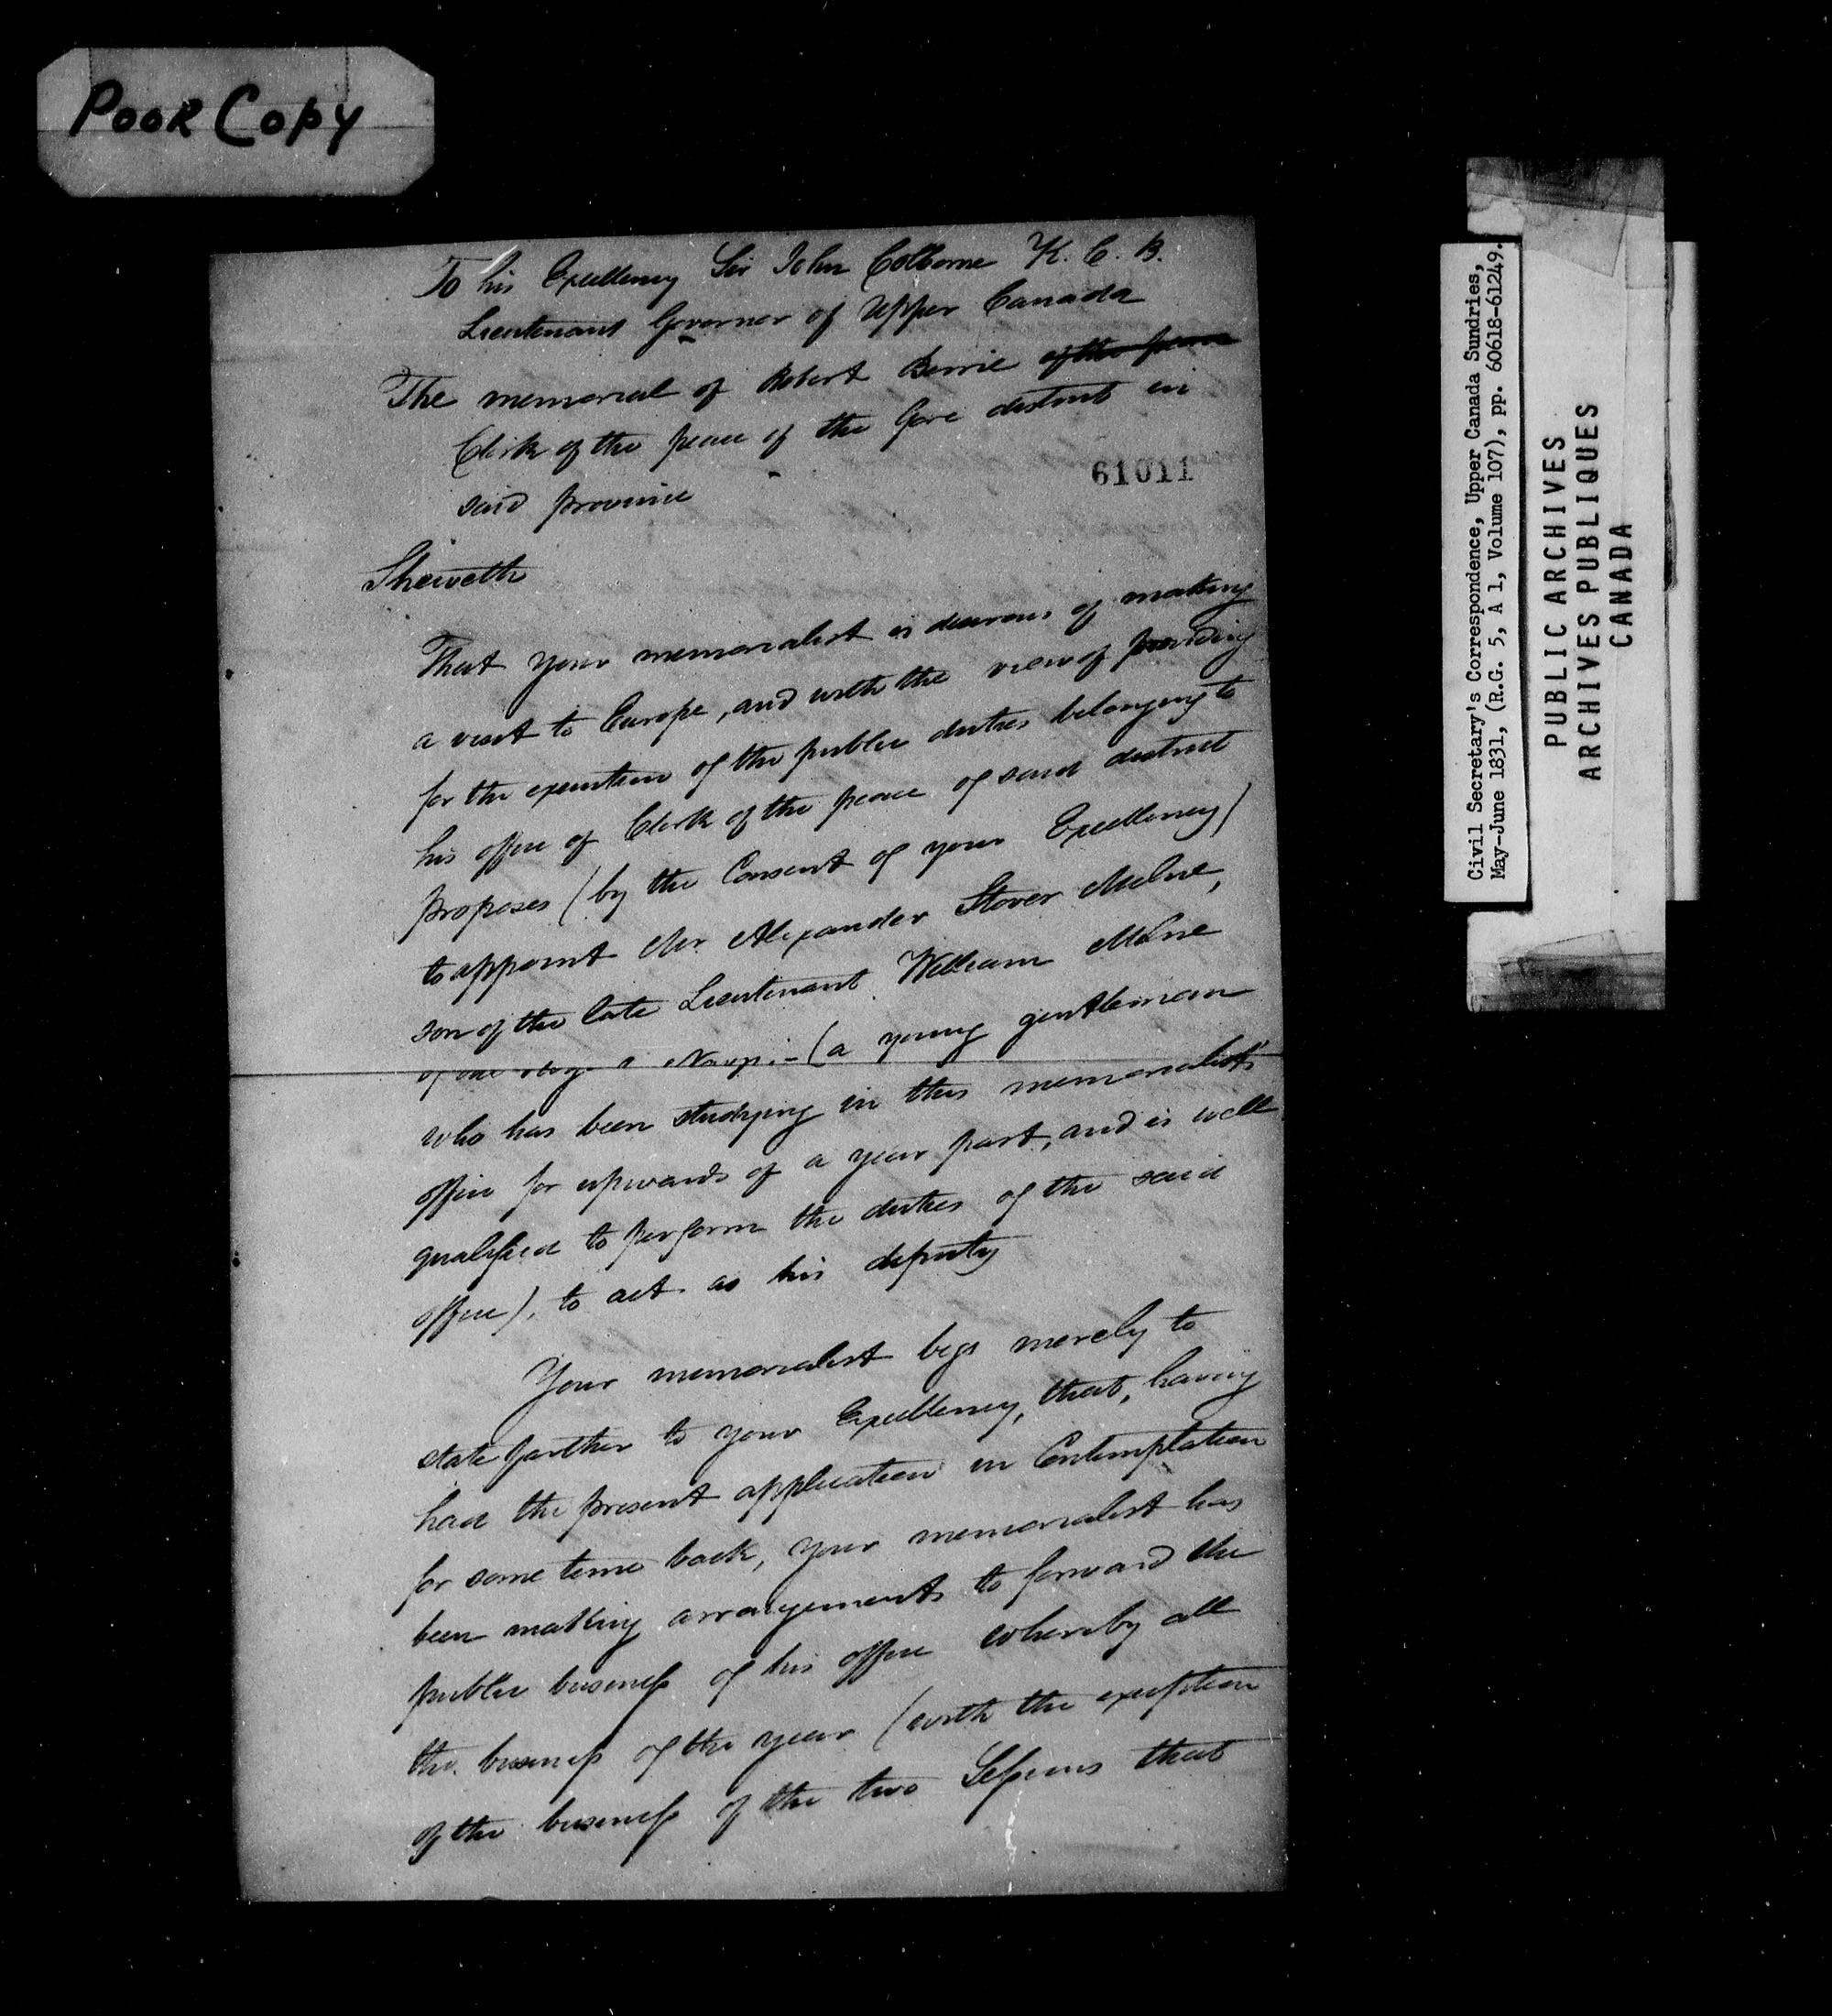 POOR COPY
To his Excellency Sir John Colborne K. C. B.
Lieutenant Governor of Upper Canada
The memorial of Robert Berrie of the peace
Clerk of the peace of the Gore district in
said province
61011
Sheweth
That your memorialist is desirous of making
a visit to Europe, and with the view of providing
for the execution of the public duties belonging to
his office of Clerk of the peace of said district
proposes (by the Consent of your Excellency)
to appoint Mr. Alexander Stover Milne,
son of the late Lieutenant William Milne
of the Navy - (a young gentleman
who has been studying in this memorialist's
office for upwards of a year past, and is well
qualified to perform the duties of the said
office), to act as his deputy
Your memorialist begs merely to
state farther to your Excellency, that, having
had the present application in Contemplation
for some time back, your memorialist has
been making arrangements to forward the
public business of his office whereby all
the business of the year (with the exception
of the business of the two Sessions that
Civil Secretary's Correspondence, Upper Canada Sundries,
May-June 1831, (R.G. 5, A 1, Volume 107), pp. 60618-61249.
PUBLIC ARCHIVES
ARCHIVES PUBLIQUES
CANADA